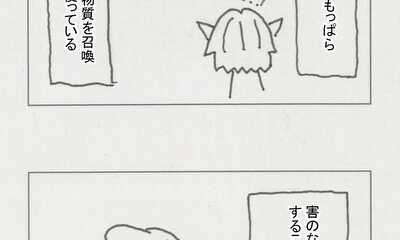 もっぱら
物質を召喚
っている
害のな
する